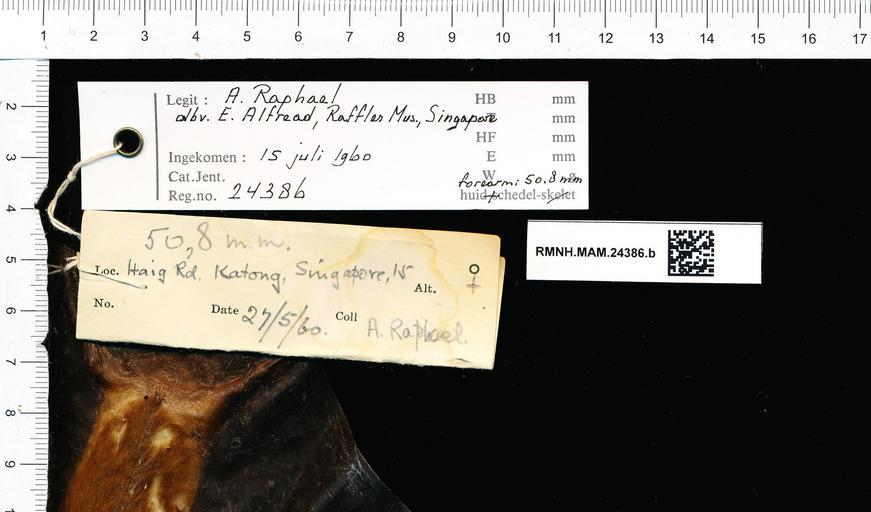 1 2 3 4 5 6 7 8 9 10 11 12 13 14 15 16 17
2
3
4
5
6
7
8
9
Legit : A. Raphael HB mm
dbv. E. Alfread, Raffles Mus., Singapore mm
HF mm
Ingekomen : 15 juli 1960 E mm
Cat.Jent. W
forearm: 50.8 mm
Reg.no. 24386 huid + schedel-skelet
50,8 m.m.
Loc. Haig Rd. Katong, Singapore, 15 Alt. ♀
No. Date 27/5/60. Coll A. Raphael.
RMNH.MAM.24386.b